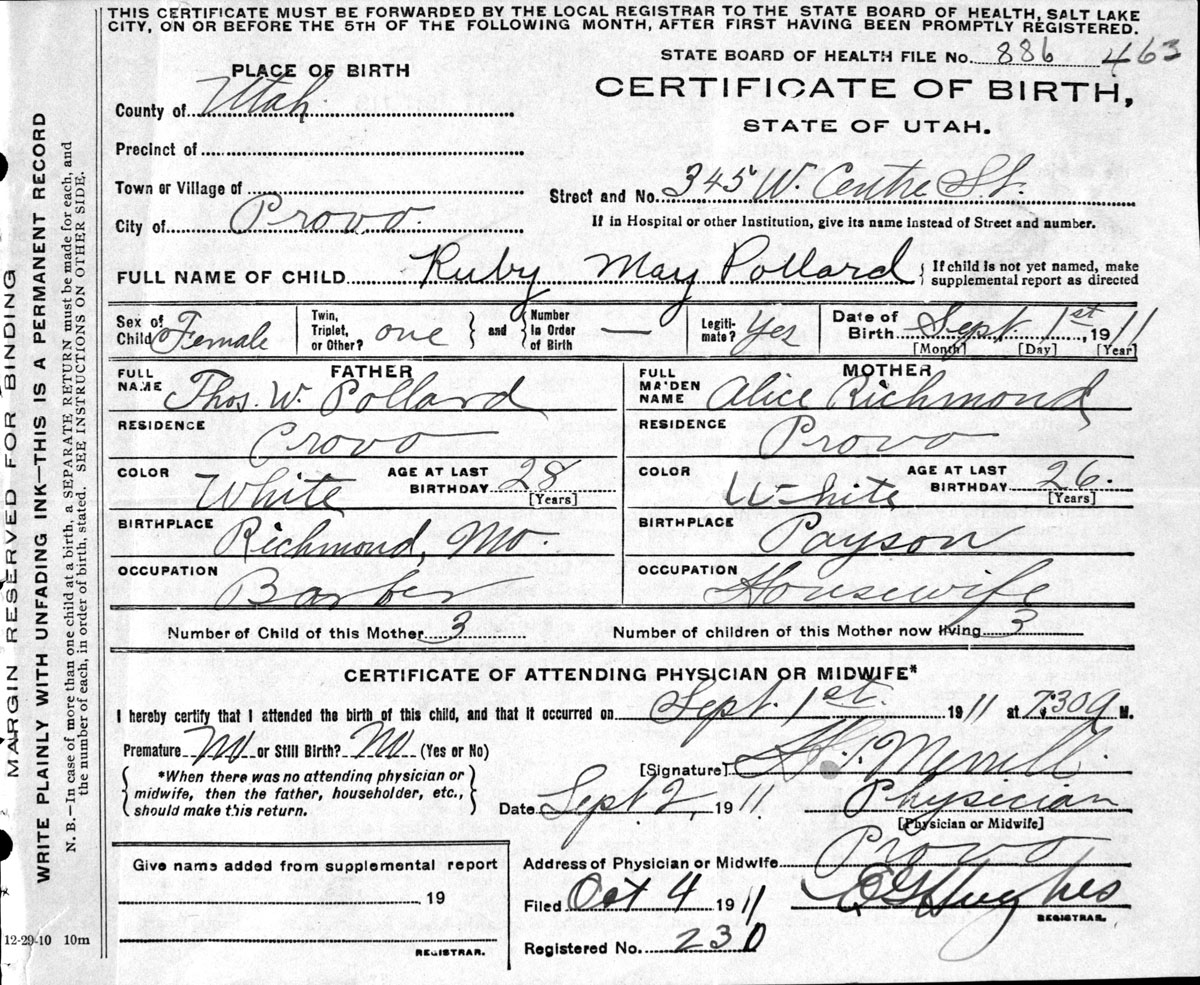 THIS CERTIFICATE MUST BE FORWARDED BY THE LOCAL REGISTRAR TO THE STATE BOARD OF HEALTH, SALT LAKE
CITY, ON OR BEFORE THE 5TH OF THE FOLLOWING MONTH, AFTER FIRST HAVING BEEN PROMPTLY REGISTERED.
STATE BOARD OF HEALTH FILE No. 886 463
PLACE OF BIRTH
CERTIFICATE OF BIRTH,
STATE OF UTAH.
County of Utah
Precinct of
Town or Village of
Street and No. 345 W. Centre St.
City of Provo.
If in Hospital or other Institution, give its name instead of Street and number.
FULL NAME OF CHILD Ruby May Pollard { If child is not yet named, make
supplemental report as directed
Sex of Child Female
Twin, Triplet, or Other? one } and { Number in Order of Birth —
Legiti-mate? Yes
Date of Birth Sept. 1st, 1911
[Month] [Day] [Year]
FATHER
FULL NAME Thos. W. Pollard
RESIDENCE Provo
COLOR White AGE AT LAST BIRTHDAY 28
[Years]
BIRTHPLACE Richmond, Mo.
OCCUPATION Barber
MOTHER
FULL MAIDEN NAME Alice Richmond
RESIDENCE Provo
COLOR White AGE AT LAST BIRTHDAY 26.
[Years]
BIRTHPLACE Payson
OCCUPATION Housewife
Number of Child of this Mother 3 Number of children of this Mother now living 3
CERTIFICATE OF ATTENDING PHYSICIAN OR MIDWIFE*
I hereby certify that I attended the birth of this child, and that it occurred on Sept. 1st. 1911 at 7:30a M.
Premature No or Still Birth? No (Yes or No)
{ *When there was no attending physician or
midwife, then the father, householder, etc.,
should make this return. }
[Signature] Merrill
Date Sept 2, 1911 Physician
[Physician or Midwife]
Give name added from supplemental report
19
REGISTRAR.
Address of Physician or Midwife Provo
Filed Oct 4 1911 Hughes
REGISTRAR.
Registered No. 230
MARGIN RESERVED FOR BINDING
WRITE PLAINLY WITH UNFADING INK—THIS IS A PERMANENT RECORD
N. B.—In case of more than one child at a birth, a SEPARATE RETURN must be made for each, and
the number of each, in order of birth, stated. SEE INSTRUCTIONS ON OTHER SIDE.
12-29-10 10m